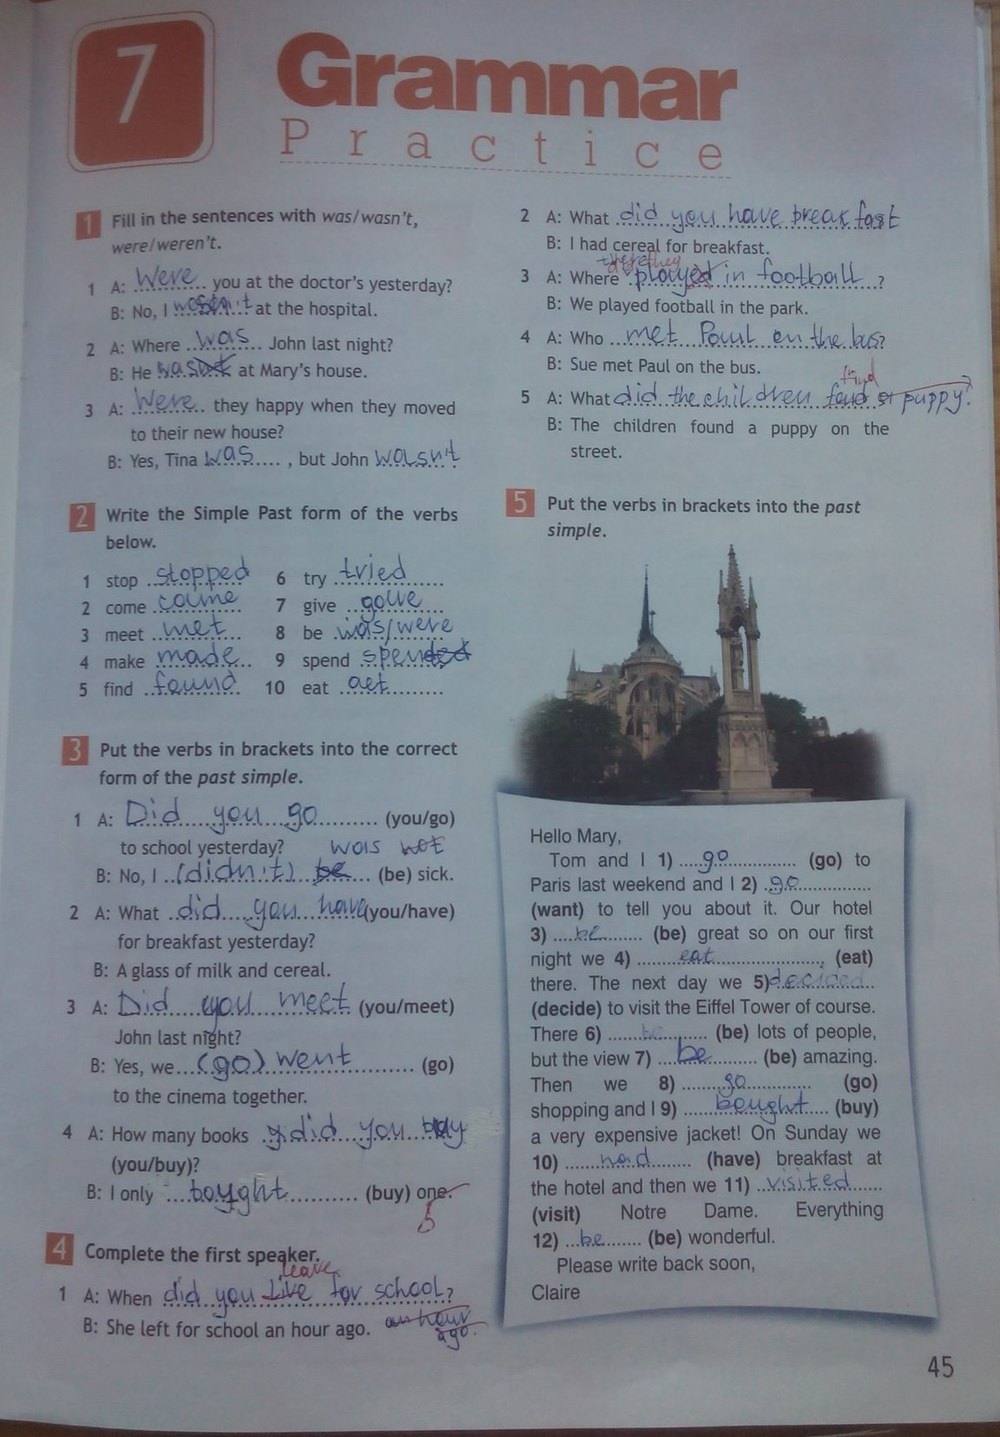 7
Grammar
Practice
1 Fill in the sentences with was/wasn't,
were/weren't.
1 A: Were you at the doctor's yesterday?
B: No, I wasn't at the hospital.
2 A: Where was John last night?
B: He was at Mary's house.
3 A: Were they happy when they moved
to their new house?
B: Yes, Tina was ...., but John wasn't
2 Write the Simple Past form of the verbs
below.
1 stop stopped 6 try tried
2 come came 7 give gave
3 meet met 8 be was/were
4 make made 9 spend spended
5 find found 10 eat aet
3 Put the verbs in brackets into the correct
form of the past simple.
1 A: Did you go (you/go)
to school yesterday? was not
B: No, I (didn't) be (be) sick.
2 A: What did you have (you/have)
for breakfast yesterday?
B: A glass of milk and cereal.
3 A: Did you meet (you/meet)
John last night?
B: Yes, we (go) went (go)
to the cinema together.
4 A: How many books did you buy
(you/buy)?
B: I only boyght (buy) one.
5
4 Complete the first speaker.
leave
1 A: When did you live for school?
B: She left for school an hour ago. an hour
ago.
2 A: What did you have breakfast
B: I had cereal for breakfast.
they
3 A: Where played in football ?
B: We played football in the park.
4 A: Who met Paul on the bus?
B: Sue met Paul on the bus.
find
5 A: What did the children puppy?
B: The children found a puppy on the
street.
5 Put the verbs in brackets into the past
simple.
Hello Mary,
Tom and I 1) go (go) to
Paris last weekend and I 2) go
(want) to tell you about it. Our hotel
3) be (be) great so on our first
night we 4) eat (eat)
there. The next day we 5) decided
(decide) to visit the Eiffel Tower of course.
There 6) be (be) lots of people,
but the view 7) be (be) amazing.
Then we 8) go (go)
shopping and I 9) bought (buy)
a very expensive jacket! On Sunday we
10) had (have) breakfast at
the hotel and then we 11) visited
(visit) Notre Dame. Everything
12) be (be) wonderful.
Please write back soon,
Claire
45